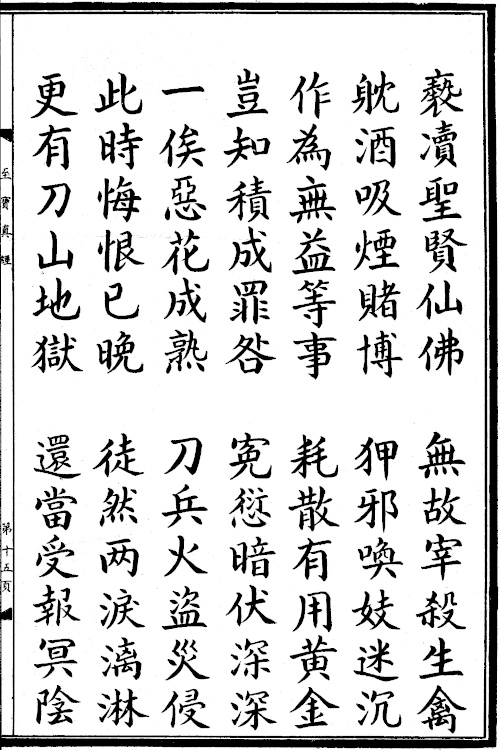 褻瀆聖賢仙佛　無故宰殺生禽
躭酒吸煙賭博　狎邪喚妓迷沉
作為無益等事　耗散有用黃金
豈知積成罪咎　冤愆暗伏深深
一俟惡花成熟　刀兵火盜災侵
此時悔恨已晚　徒然两淚漓淋
更有刀山地獄　還當受報冥陰
至寶真經
第十五頁